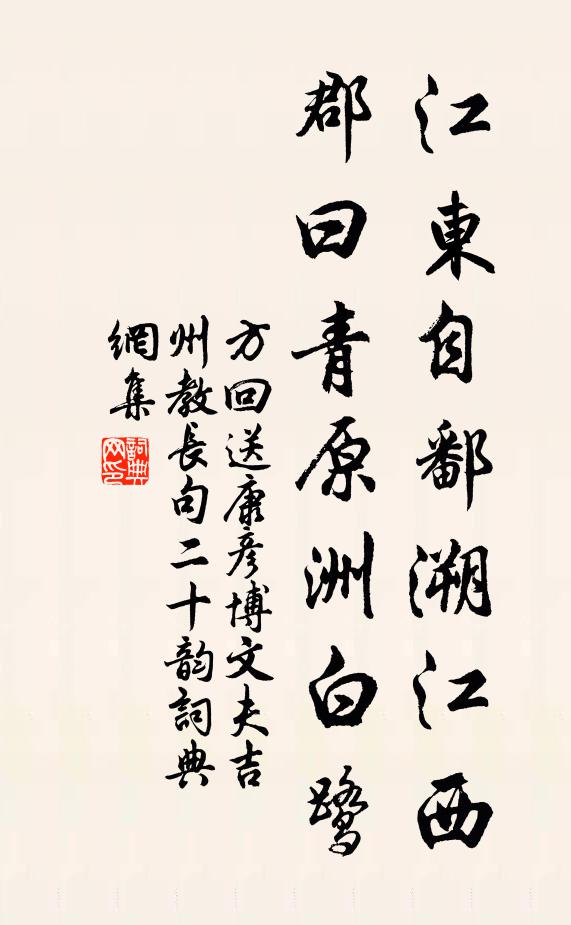 江東自鄱溯江西
郡曰青原洲白鷺
方回送康彥博文夫吉
州教長句二十韵詞典
網集
詞典
网印